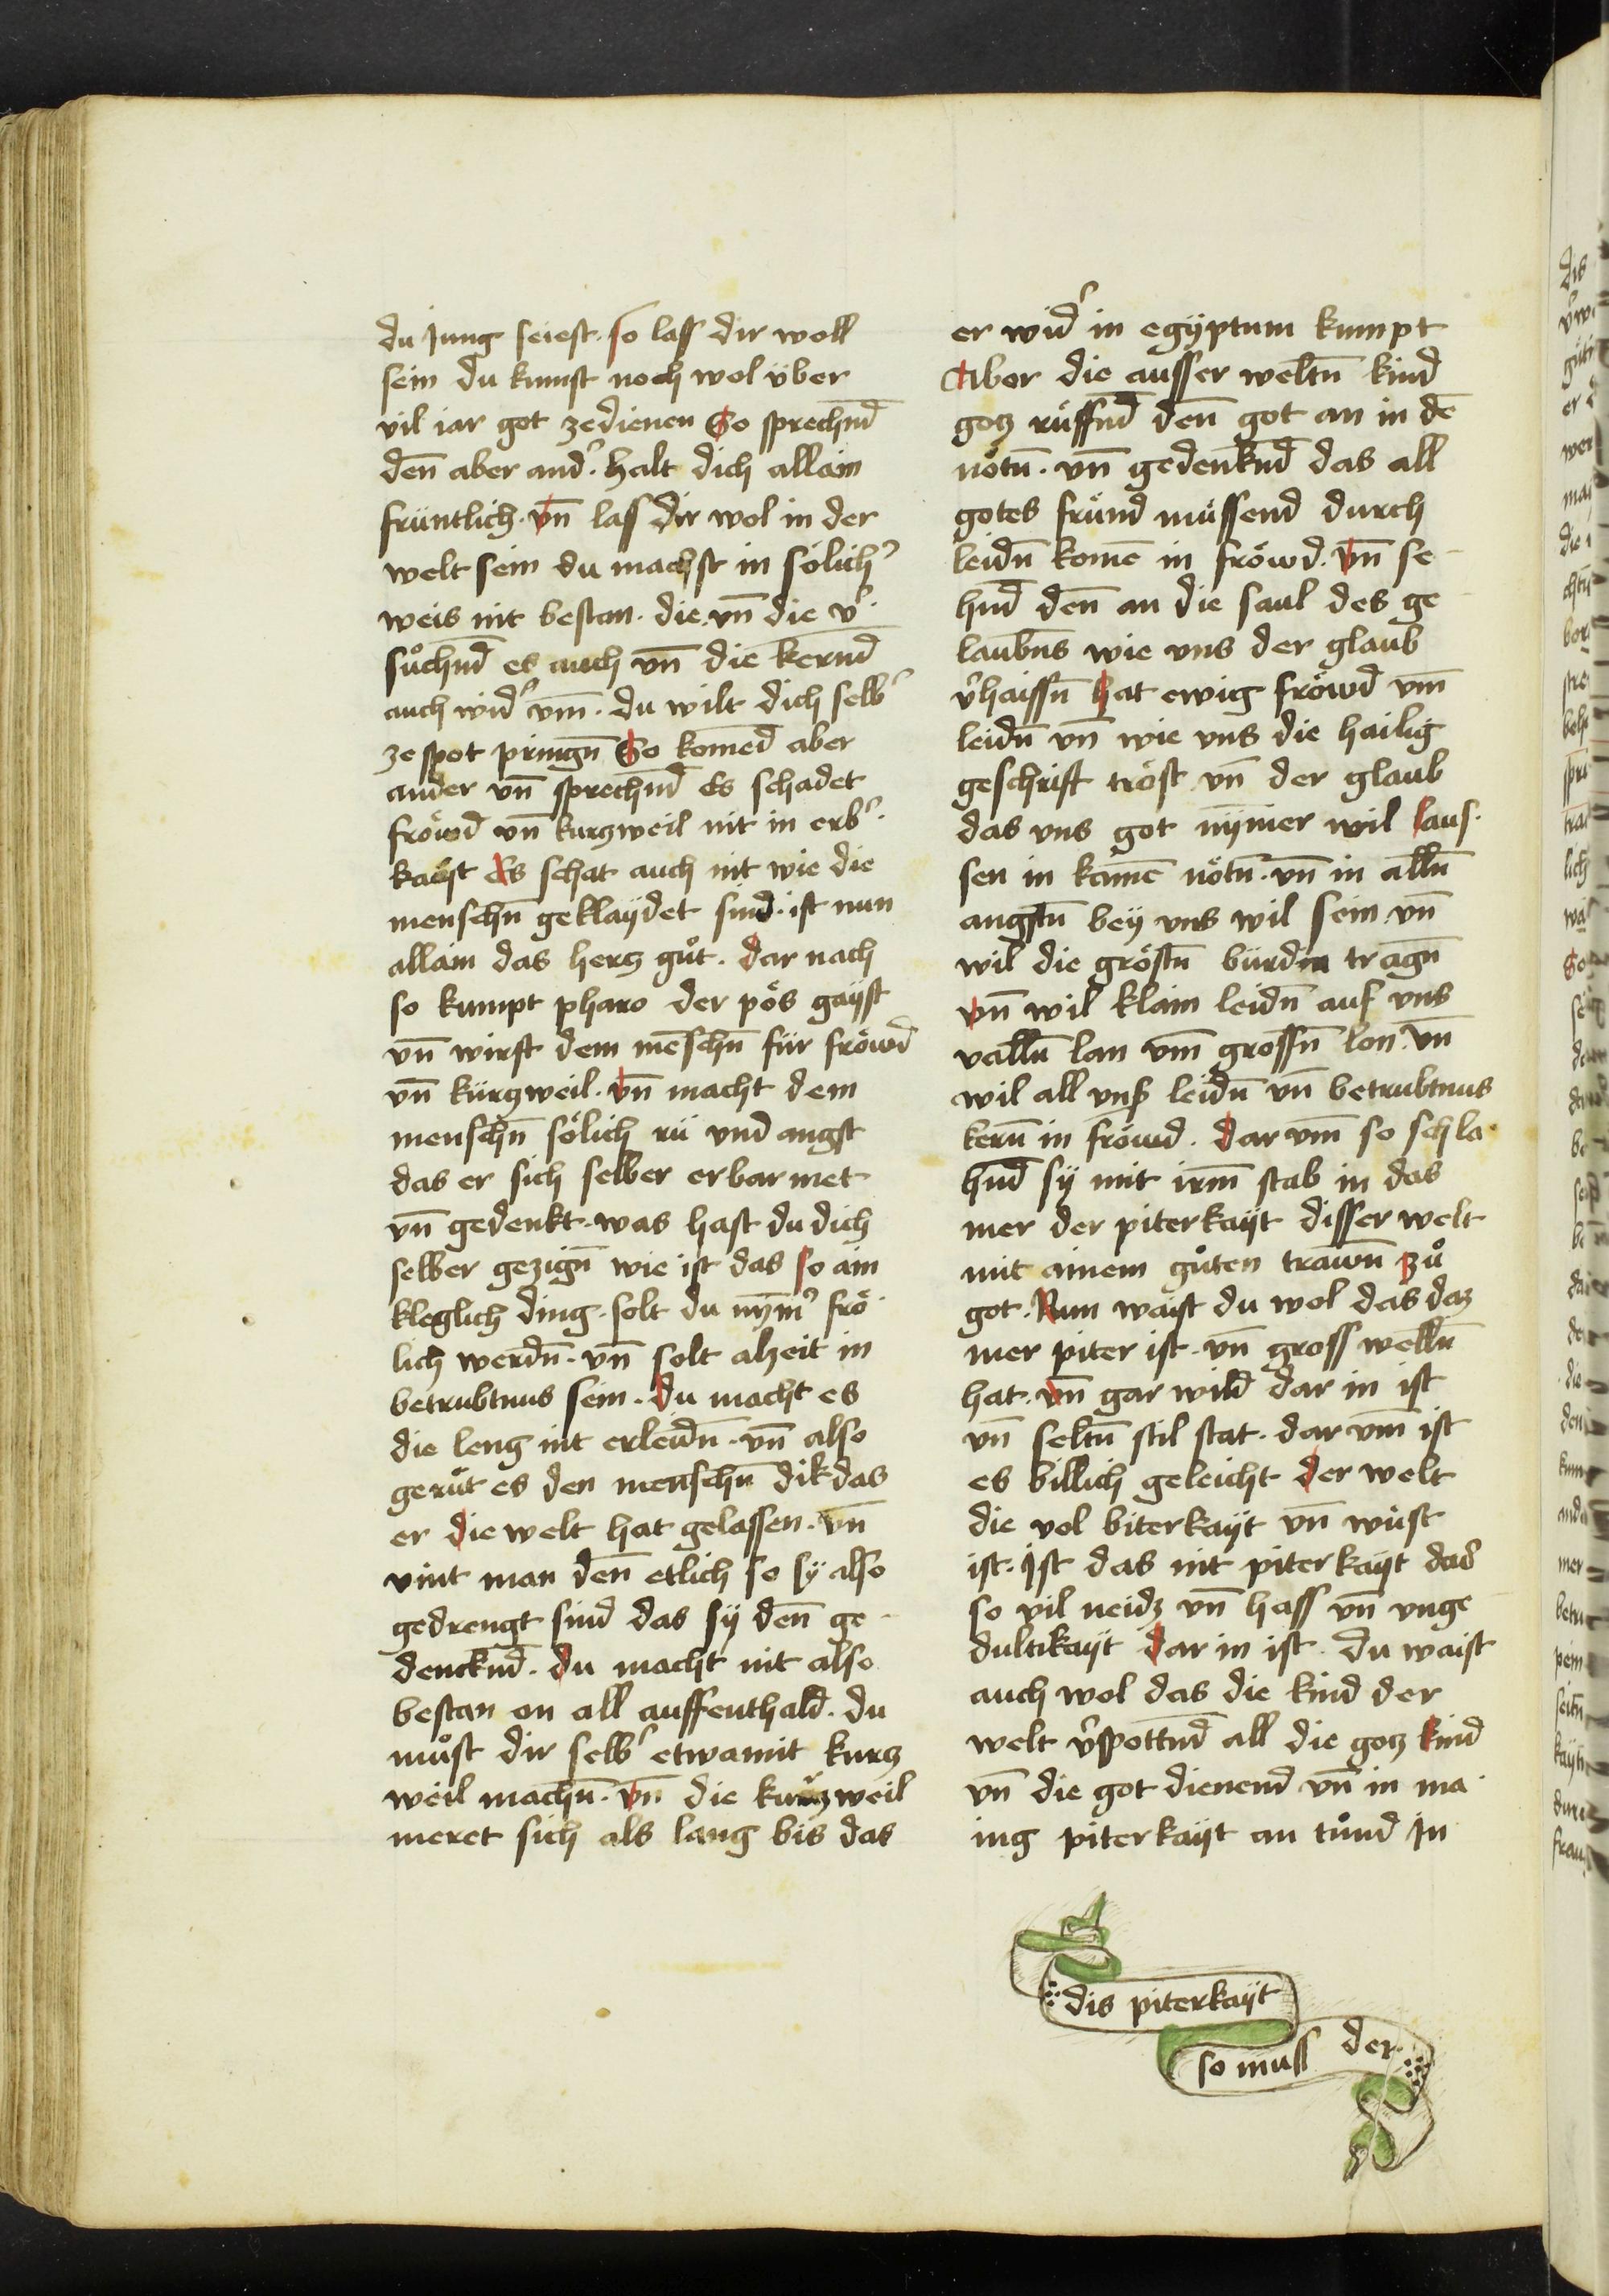 du jung seiest. so lass dir woll
sein du kumst noch wol über
vil iar got zedienen So sprechnd̄
den̄ aber and᷑. halt dich allain
früntlich. vn̄ las dir wol in der
welt sein du machst in sölich᷑
weis nit bestan. die vn̄ die v᷑
sůchnd̄ es auch vn̄ die kernd̄
auch wid᷑ vm̄. du wilt dich selb᷑
ze spot pringn̄ So komed̄ aber
ander vn̄ sprechnd̄ Es schadet
fröwd vn̄ kurzweil nit in erb᷑
kayt Es schat auch nit wie die
menschn̄ geklaÿdet sind. ist nun
allain das hercz gůt. dar nach
so kumpt pharo der pös gaÿst
vn̄ wirft dem menschn̄ für fröwd
vn̄ kürczweil. vn̄ macht dem
menschn̄ sölich rü vnd angst
das er sich selber erbarmet
vn̄ gedenkt. was hast du dich
selber gezign̄ wie ist das so ain
kleglich ding. solt du nym᷑ frö
lich werdn̄. vn̄ solt alzeit in
betrubtnus sein. du macht es
die leng nit erleidn̄. vn̄ also
gerüt es den menschn̄ dik das
er die welt hat gelassen. vn̄
vint man den̄ etlich so sy also
gedrengt sind das sÿ den̄ ge
dencknd̄. du macht nit also
bestan on all auffenthald. du
můst dir selb᷑ etwamit kurcz
weil machn̄. vn̄ die kurczweil
meret sich als lang bis das
er wid᷑ in egÿptum kumpt
Aber die ausser weltn̄ kind
gocz rüffnd̄ den̄ got an in dē
nötn̄. vn̄ gedenknd̄ das all
gotes fründ müssend durch
leidn̄ komē in fröwd. Vn̄ se
hnd̄ den̄ an die saul des ge
laubn̄s wie vns der glaub
v᷑haissn̄ hat ewig fröwd vm̄
leidn̄ vn̄ wie vns die hailig
geschrift tröst vn̄ der glaub
das vns got nÿmer wil laus
sen in kainē nötn̄. vn̄ in alln̄
angstn̄ bey vns wil sein vn̄
wil die gröstn̄ bürdin tragn̄
vn̄ wil klain leidn̄ auf vns
valln̄ lan vm̄ grossn̄ lon. vn̄
wil all vns᷑ leidn̄ vn̄ betrubtnus
kern̄ in fröwd. Dar vm̄ so schla
hnd̄ sÿ mit irm̄ stab in das
mer der piterkaÿt disser welt
mit ainem gůten trawn̄ zů
got. Nun waist du wol das daz
mer piter ist. vn̄ gross welln̄
hat. vn̄ gar wild dar in ist
vn̄ seltn̄ stil stat. dar vm̄ ist
es billich geleicht der welt
die vol biterkaÿt vn̄ wüst
ist. ist das nit piterkaÿt das
so vil neidz vn̄ hass vn̄ vnge
dultikaÿt dar in ist. du waist
auch wol das die kind der
welt v᷑spottnd̄ all die gocz kind
vn̄ die got dienend vn̄ in ma
ing piterkaÿt an tůnd In
dis piterkaÿt
so muss der